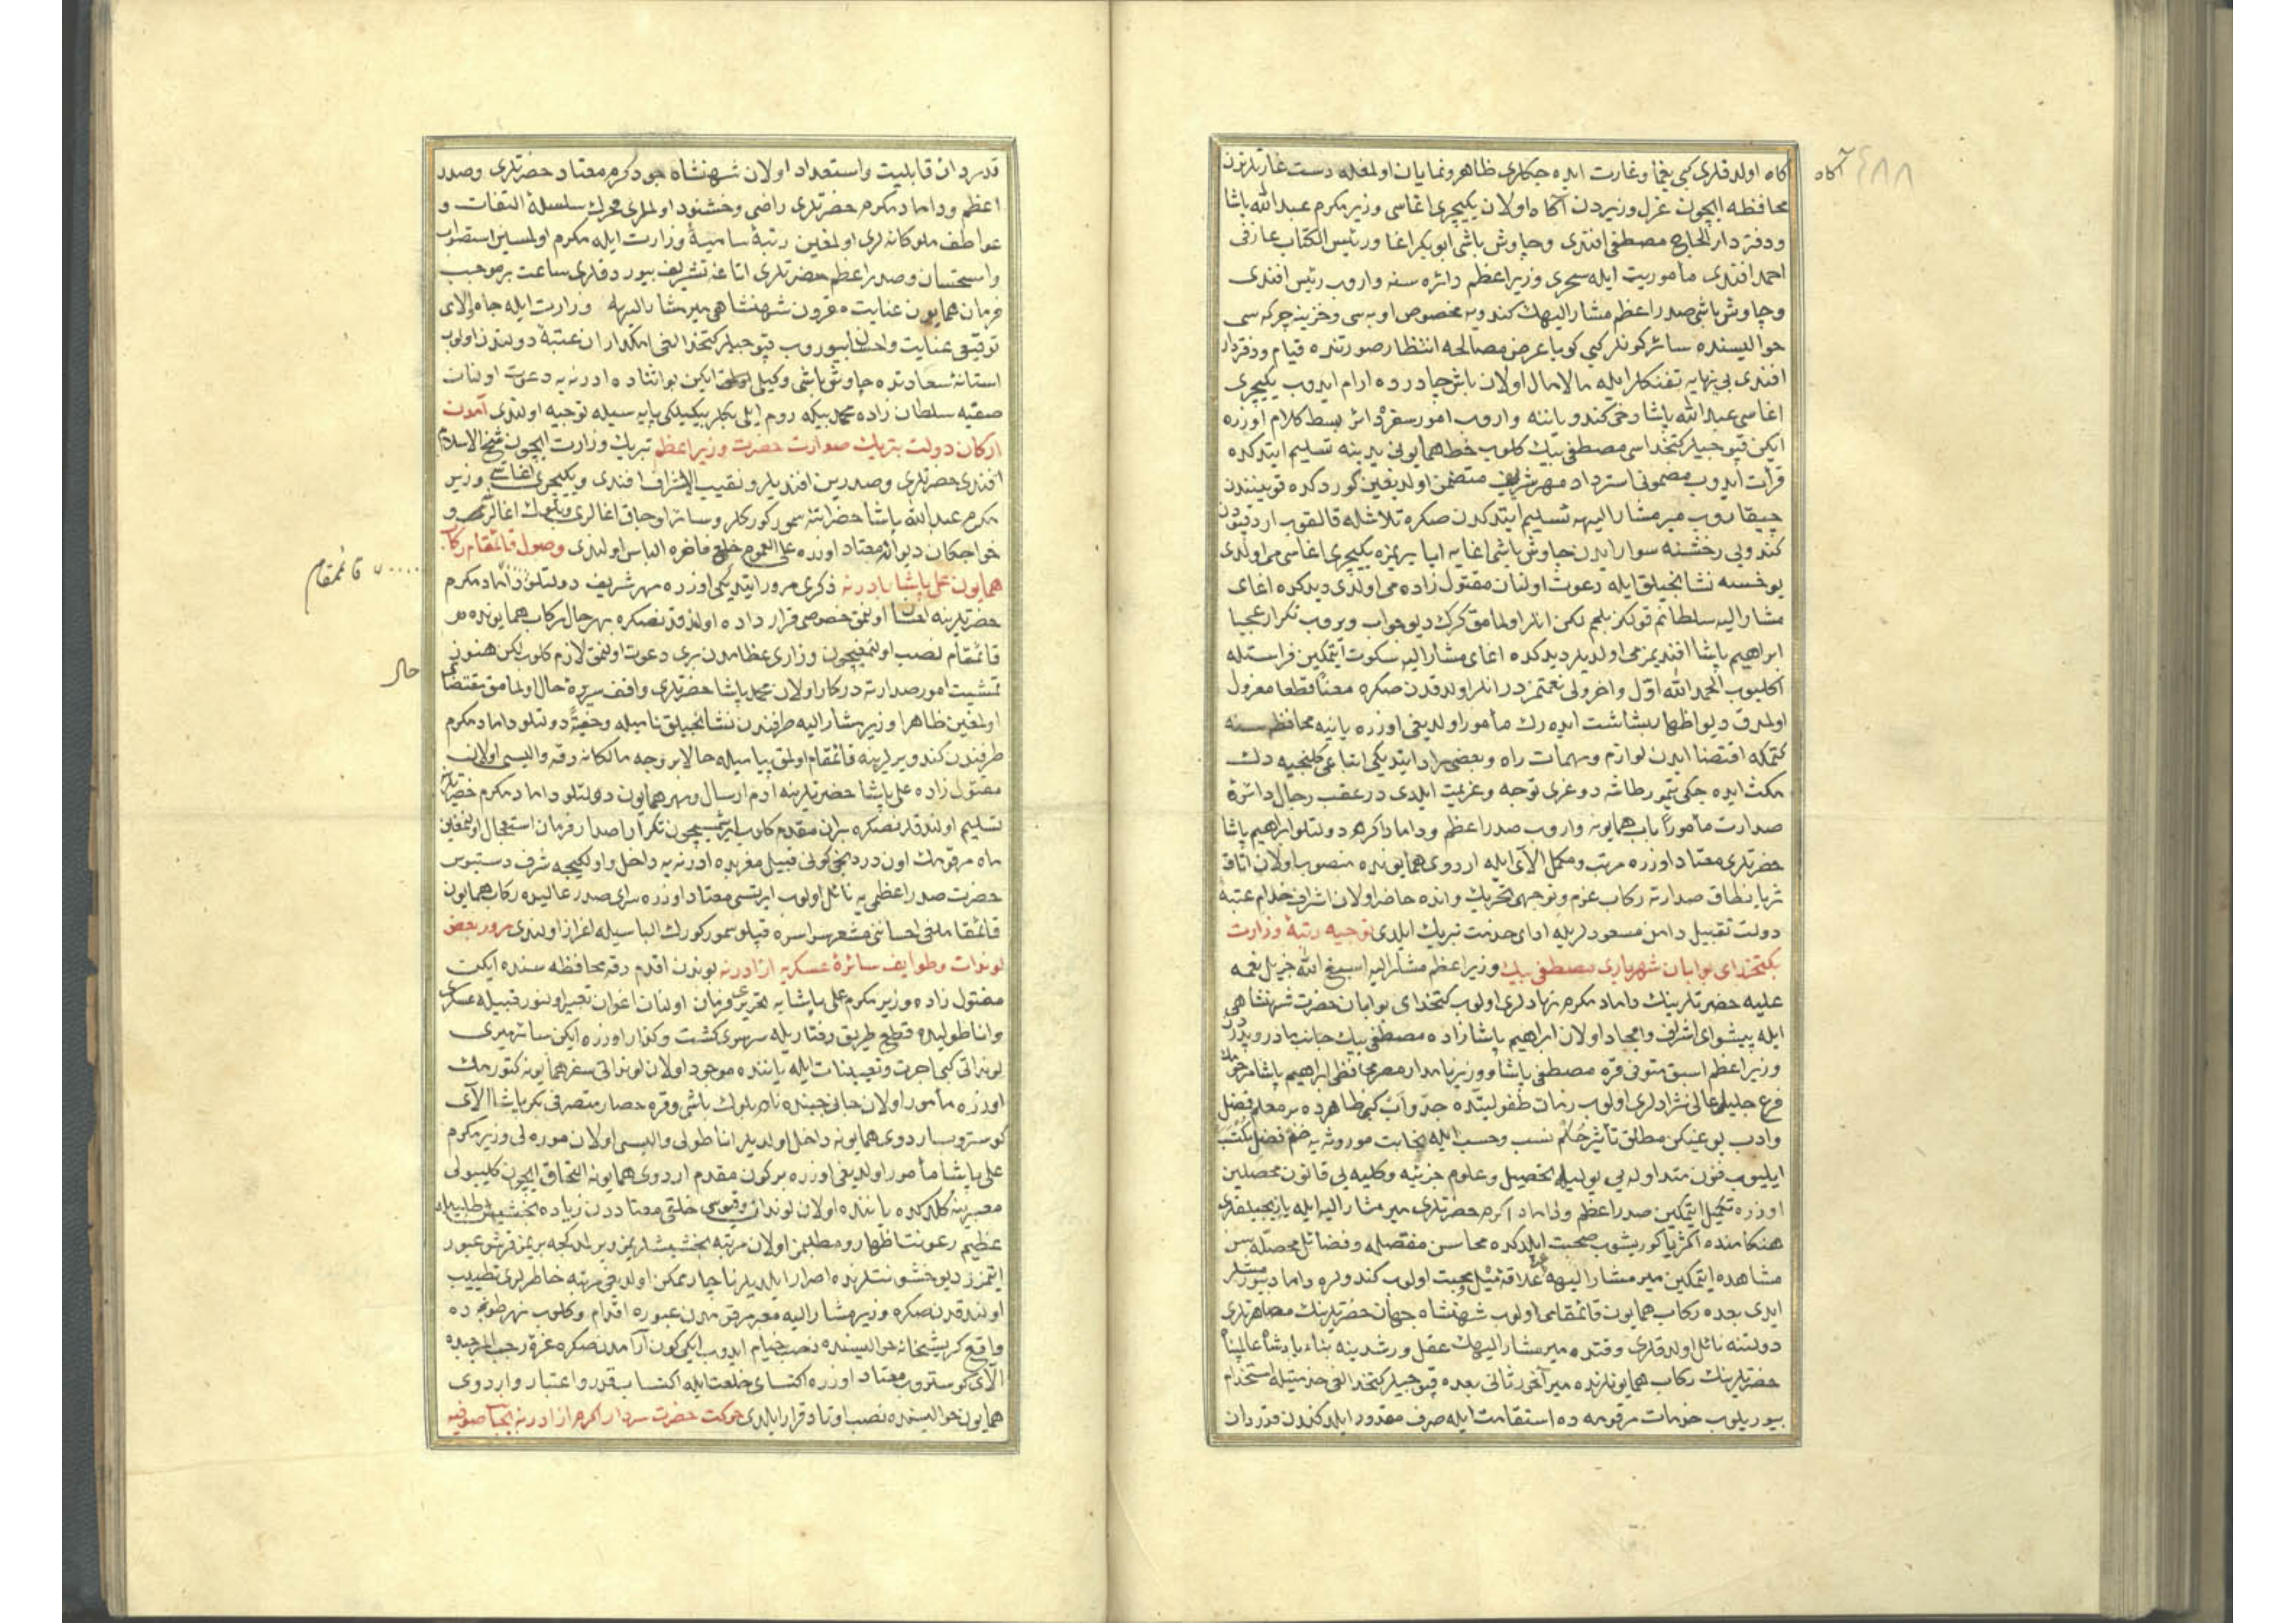 آگاه
٤٨٨
كاه اولدقلرى كبى يغما وغارت ايده جكلرى ظاهر ونمايان اولمغله دست غارتلرندن
محافظه ايچون عزل وزيردن آكاه اولان يكيچرى اغاسى وزير مكرم عبدالله پاشا
ودفتردار الحاج مصطفى افندى وچاوش باشى ابوبكر اغا ورئيس الكتاب عارفى
احمد افندى مأموريت ايله سحرى وزير اعظم دائره سنه واروب رئيس افندى
وچاوش باشى صدر اعظم مشار اليهك كندويه مخصوص اوبه سى وخزينه چركه سى
حواليسنده سائر كونلر كبى كويا عرض مصالحه انتظار صورتنده قيام ودفتردار
افندى بى نهايه تفنكلر ايله مالامال اولان باش چادرده ارام ايدوب يكيچرى
اغاسى عبدالله پاشا دخى كندو ياننه واروب امور سفره دائر بسط كلام اوزره
ايكن قپوجيلر كتخداسى مصطفى بيك كلوب خط همايونى يدينه تسليم ايتدكده
قرائت ايدوب مضمونى استرداد مهر شريف متضمن اولديغين كوردكده قوينندن
چيقاروب مير مشار اليهه تسليم ايتدكدن صكره تلاشله قالقوب اردقپودن
كندويى رخشنه سوار ايدن چاوش باشى اغايه ايا يريمزه يكيچرى اغاسى مى اولدى
يوخسه نشانجيلق ايله دعوت اولنان مقتول زاده مى اولدى ديدكده اغاى
مشار اليه سلطانم قولكز بلمم لكن انلر اولمامق كرك ديو جواب ويروب تكرار عجبا
ابراهيم پاشا افنديمز مى اولديلر ديدكده اغاى مشار اليه سكوت ايتمكين فراستله
اكليوب الحمد لله اول واخر ولى نعمتمزدر انلر اولدقدن صكره معناً قطعا معزول
اولمدق ديو اظهار بشاشت ايده رك مأمور اولديغى اوزره يانيه محافظه سنه
كتمكه اقتضا ايدن لوازم ومهمات راه وبعضى مراد ايتديكى اتباعى كلنجيه دك
مكث ايده جكى تيمورطاشه دوغرى توجه وعزيمت ايلدى در عقب رجال دائرهٔ
صدارت مأموراً باب همايونه واروب صدر اعظم وداماد اكرم دولتلو ابراهيم پاشا
حضرتلرى معتاد اوزره مرتب ومكمل الاى ايله اردوى همايونده منصوب اولان اتاق
ثريا نطاق صدارته ركاب عزم وتوجهى تحريك وانده حاضر اولان اشراف خدام عتبهٔ
دولت تقبيل دامن مسعودلريله اداى خدمت تبريك ايلدى توجيه رتبهٔ وزارت
بكتخداى بوابان شهريارى مصطفى بيك وزير اعظم مشار اليه اسبغ الله جزيل نعمه
عليه حضرتلرينك داماد مكرم نهادلرى اولوب كتخداى بوابان حضرت شهنشاهى
ايله پيشواى اشراف وامجاد اولان ابراهيم پاشازاده مصطفى بيك جانب مادر وپدردن
وزير اعظم اسبق متوفى قره مصطفى پاشا ووزير نامدار مصر محافظى ابراهيم پاشا مرحومك
فرع جليلى عالى نژادلرى اولوب زمان طفوليتده جد واب كبى ظاهرده بر معلم فضل
وادب يوغيكن مطلق تأثير حكم نسب وحسب ايله نجابت موروثه يه ضم فضل مكتسب
ايليوب فنون متداوله يى يوليله تحصيل وعلوم جزئيه وكليه يى قانون محصلين
اوزره تكميل ايتمكين صدر اعظم وداماد اكرم حضرتلرى مير مشار اليه ايله يازيجيلقلرى
هنكامنده اكثريا كوريشوب صحبت ايلدكده محاسن مفضله وفضائل محصله سن
مشاهده ايتمكين مير مشار اليهه علاقهٔ ميل ومحبت اولوب كندولره داماد بيورمشلر
ايدى بعده ركاب همايون قائمقامى اولوب شهنشاه جهان حضرتلرينك مصاهرتلرى
دولتنه نائل اولدقلرى وقتده مير مشار اليهك عقل ورشدينه بناء پادشاه عالمپناه
حضرتلرينك ركاب همايونلرنده ميراخور ثانى بعده قپوجيلر كتخدالغى خدمتيله استخدام
بيوريلوب خدمات مرقومه ده استقامت ايله صرف مقدور ايلدكندن قدردان
قدردان قابليت واستعداد اولان شهنشاه جود كرم معتاد حضرتلرى وصدر
اعظم وداماد مكرم حضرتلرى راضى وخشنود اولملرى محرك سلسلهٔ التفات و
عواطف ملوكانه لرى اولمغين رتبهٔ ساميهٔ وزارت ايله مكرم اولمسين استصواب
واستحسان وصدر اعظم حضرتلرى اتاغه تشريف بيوردقلرى ساعت بر موجب
فرمان همايون عنايت مقرون شهنشاهى مير مشار اليهه وزارت ايله جاه والاى
توقيعى عنايت واحسان بيوروب قپوجيلر كتخدالغى امكداران عتبهٔ دولتدن اولوب
استانهٔ سعادتده چاوش باشى وكيلى ايكن بو اثناده ادرنه يه دعوت اولنان
صفيه سلطان زاده محمد بيكه روم ايلى بكلربيكيلكى پايه سيله توجيه اولندى آمدن
اركان دولت بتبريك صدارت حضرت وزير اعظم تبريك وزارت ايچون شيخ الاسلام
افندى حضرتلرى وصدرين افنديلر ونقيب الاشراف افندى ويكيچرى اغاسى وزير
مكرم عبدالله پاشا حضراتنه سمور كوركلر وسائر اوجاق اغالرى وبلوك اغالرى و
خواجكان ديوانه معتاد اوزره على العموم خلع فاخره الباس اولندى وصول قائمقام ركاب
همايون على پاشا بادرنه ذكرى مرور ايتديكى اوزره مهر شريف دولتلو داماد مكرم
قائمقام
حضرتلرينه احسان اولنمق خصوصى قرارداده اولدقدنصكره بهر حال ركاب همايونده
قائمقام نصب اولنمغيچون وزراى عظامدن برى دعوت اولنمق لازم كلوب لكن هنوز
حال
تمشيت امور صدارته دركار اولان محمد پاشا حضرتلرى واقف سريرهٔ حال اولمامق مقتضاى
اولمغين ظاهرا وزير مشار اليه طرفندن نشانجيلق ناميله وخفيةً دولتلو داماد مكرم
طرفندن كندو يرلرينه قائمقام اولمق پياميله حالا بر وجه مالكانه رقه واليسى اولان
مقتول زاده على پاشا حضرتلرينه ادم ارسال ومهر همايون دولتلو داماد مكرم حضرتلرينه
تسليم اولندقدنصكره بر ان مقدم كلوب ايرشمسيچون تكرارا اصدار فرمان استعجال اولنمغين
ماه مرقومك اون دردنجى كونى قبيل مغربده ادرنه يه داخل واول كيجه شرف دستبوس
حضرت صدر اعظمى يه نائل اولوب ايرتسى معتاد اوزره سراى صدر عاليده ركاب همايون
قائمقاملغى احساننى مشعر سراسره قپلو سمور كورك الباسيله اعزاز اولندى مرور بعض
لوندات وطوايف سائرهٔ عسكريه از ادرنه بوندن اقدم رقه محافظه سنده ايكن
مقتول زاده وزير مكرم على پاشايه تحريرى فرمان اولنان اعوان تعبير اولنور قبيله عسكرى
واناطوليده قطع طريق رفتاريله سرسرى كشت وكذار اوزره ايكن سائر ميرى
لونداتى كبى اجرت وتعيينات ايله ياننده موجود اولان لونداتى سفر همايونه كتورمك
اوزره مأمور اولان جانى جبنده نام بلوك باشى وقره حصار متصرفى بكر پاشا الاى
كوستروب اردوى همايونه داخل اولديلر اناطولى واليسى اولان موره لى وزير مكرم
على پاشا مأمور اولديغى اوزره بر كون مقدم اردوى همايونه التحاق ايچون كليبولى
معبرينه كلدكده ياننده اولان لوندات وقپوسى خلقى معتاددن زياده بخشيش طلبيله
عظيم رعونت اظهار ومطلبمز اولان مرتبه بخشيشلريمز ويرلمدكجه بر يمز قرشو عبور
ايتمزز ديو خشونتلرنده اصرار ايلديلر ناچار ممكن اولديغى مرتبه خاطرلرى تطييب
اولندقدنصكره وزير مشار اليه معبر مرقومدن عبوره اقدام وكلوب نهر طونجه ده
واقع كريشخانه حواليسنده نصب خيام ايدوب ايكى كون آرامدنصكره غرهٔ رجب المرجبده
الاى كوستروب معتاد اوزره اكتساى خلعت ايله اكتساب قدر واعتبار واردوى
همايون حواليسنده نصب اوتاد قرار ايلدى حركت حضرت سردار اكرم از ادرنه بجانب صوفيه